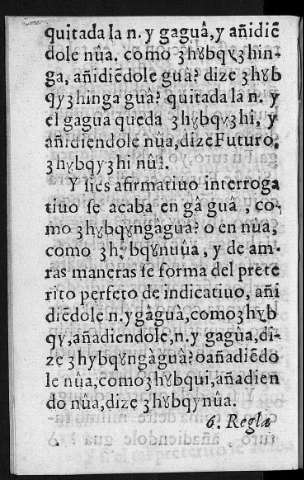 quitada la n. y gaguâ, y añidiē
dole nûa. como ȝhȣbqyȝhin-
ga, añidiēdole guâ? dize ȝhȣb
qyȝhinga guâ? quitada la n. y
el gagua queda ȝhȣbqyȝhi, y
añidiendole nûa, dize Futuro,
ȝhȣbqyȝhi nûâ.
Y si es afirmatiuo interroga
tiuo se acaba en gâ guâ , co-
mo ȝhȣbqȣngâguâ? o en nûa,
como bqȣnuûa , y de am-
ras maneras se forma del prete
rito perfeto de indicatiuo, añi
diēdole n. y gâguâ, como ȝhȣb
qy, añadiendole, n. y gagûa, di-
ze ȝhybqȣngâguâ? o añadiēdo
le nûa, como ȝhȣbqui, añadien
do nûa, dize ȝhȣbqynûa.
6. Regla